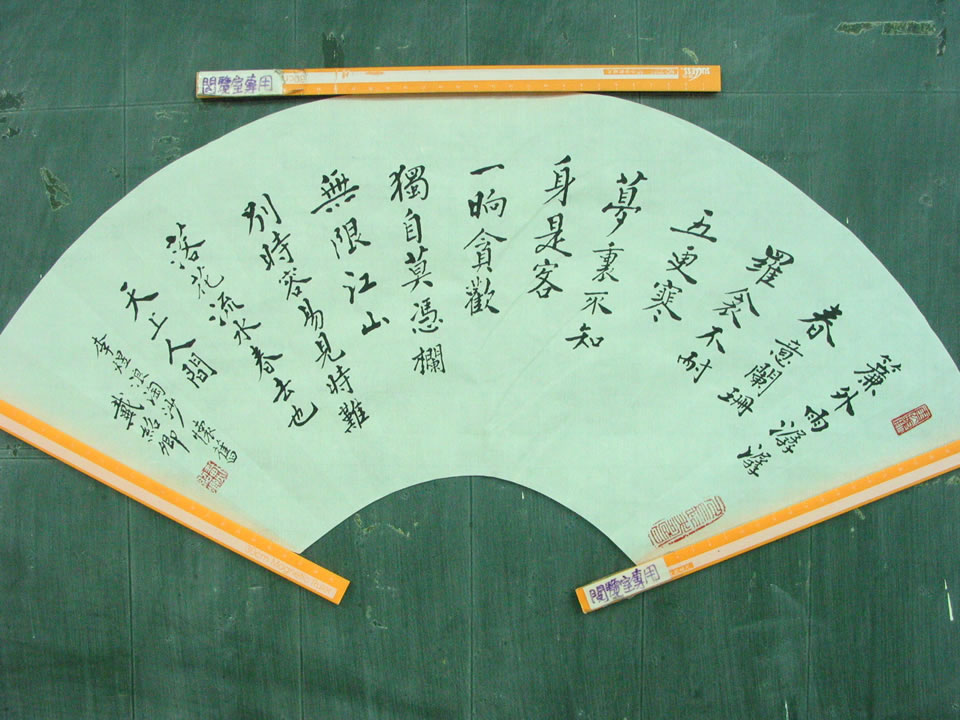 閱覽室專用
簾外雨潺潺
春意闌珊
羅衾不耐
五更寒
夢裏不知
身是客
一晌貪歡
獨自莫憑欄
無限江山
別時容易見時難
落花流水春去也
天上人間
李煜浪淘沙 懷舊
戴紹卿
閱覽室專用